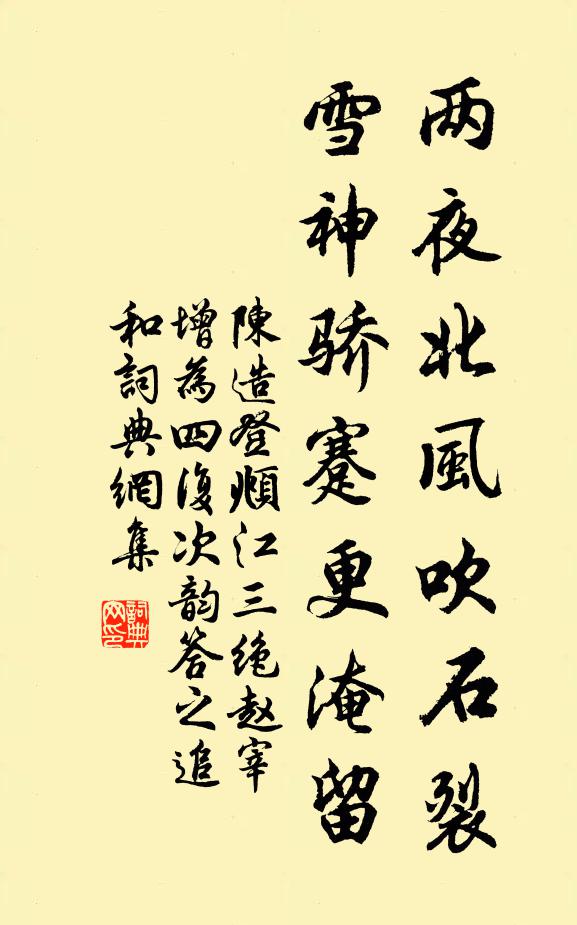 两夜北風吹石裂
雪神骄蹇更淹留
陳造登頫江三绝赵宰
增為四復次韵答之追
和詞典網集
詞典网印